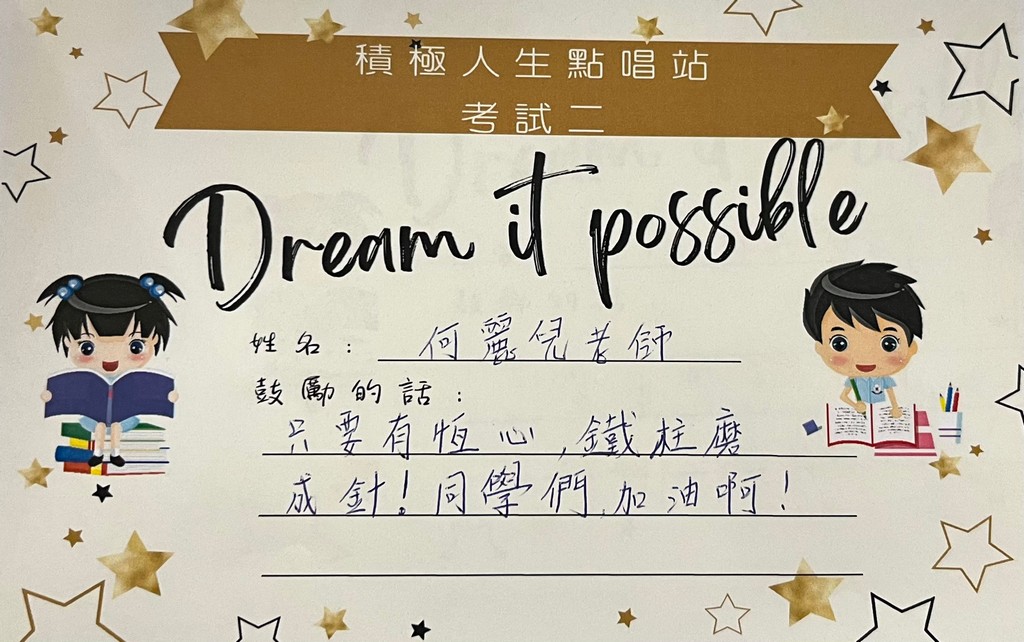 積極人生點唱站
考試二
Dream it possible
姓名：何麗兒老師
鼓勵的話：
只要有恆心，鐵柱磨
成針！同學們，加油啊！